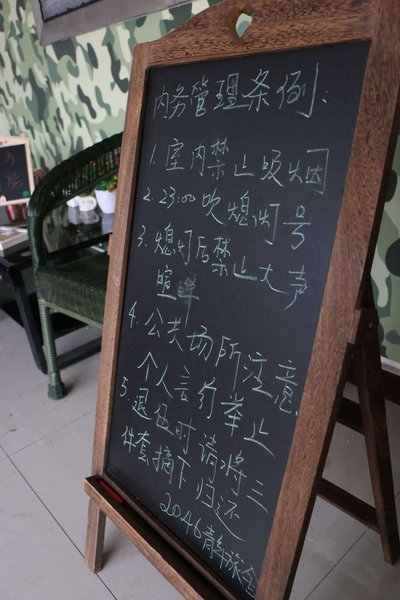 内务管理条例:
1. 室内禁止吸烟
2. 23:00吹熄灯号
3. 熄灯后禁止大声
喧哗
4. 公共场所注意
个人言行举止
5. 退伍时请将三
件套摘下归还
2046青年旅舍
能